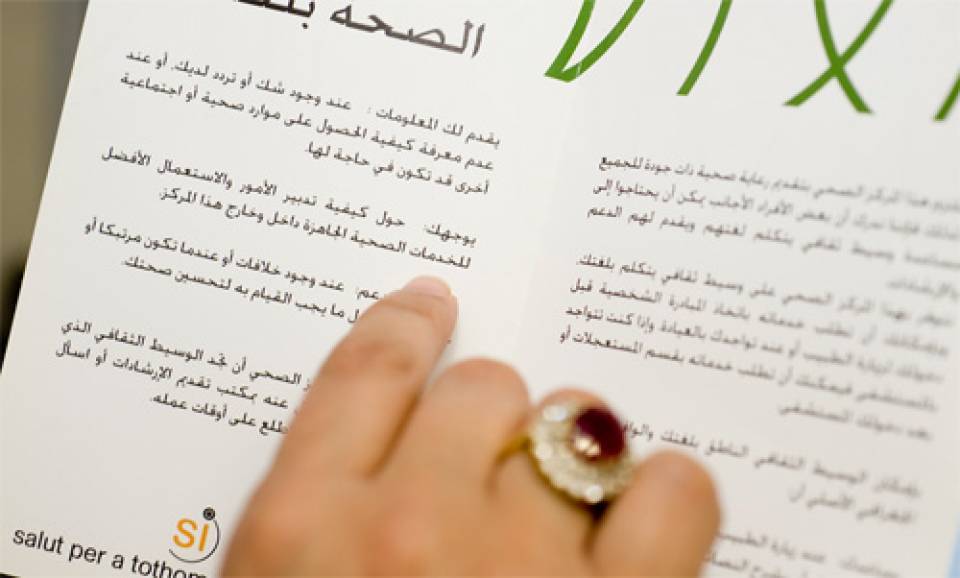 الصحة
يقدم لك المعلومات : عند وجود شك أو تردد لديك. أو عند
عدم معرفة كيفية الحصول على موارد صحية أو اجتماعية
أخرى قد تكون في حاجة لها.
يوجهك: حول كيفية تدبير الأمور والاستعمال الأفضل
للخدمات الصحية الجاهزة داخل وخارج هذا المركز.
عم: عند وجود خلافات أو عندما تكون مرتبكا أو
ل ما يجب القيام به لتحسين صحتك.
ز الصحي أن تجد الوسيط الثقافي الذي
عنه بمكتب تقديم الإرشادات أو اسأل
طلع على أوقات عمله.
SI
salut per a tothom
هذا المركز الصحي بتقديم رعاية صحية ذات جودة للجميع
فإننا ندرك أن بعض الأفراد الأجانب يمكن أن يحتاجوا إلى
وسيط ثقافي يتكلم لغتهم ويقدم لهم الدعم
بهذا المركز الصحي على وسيط ثقافي يتكلم بلغتك.
أن تطلب خدماته باتخاذ المبادرة الشخصية قبل
لزيارة الطبيب أو عند تواجدك بالعيادة وإذا كنت تتواجد
بالمستشفى فيمكنك أن تطلب خدماته بقسم المستعجلات أو
بعد دخولك المستشفى
الوسيط الثقافي الناطق بلغتك
الجغرافي الأصلي أن
عند زيارة الطبيب